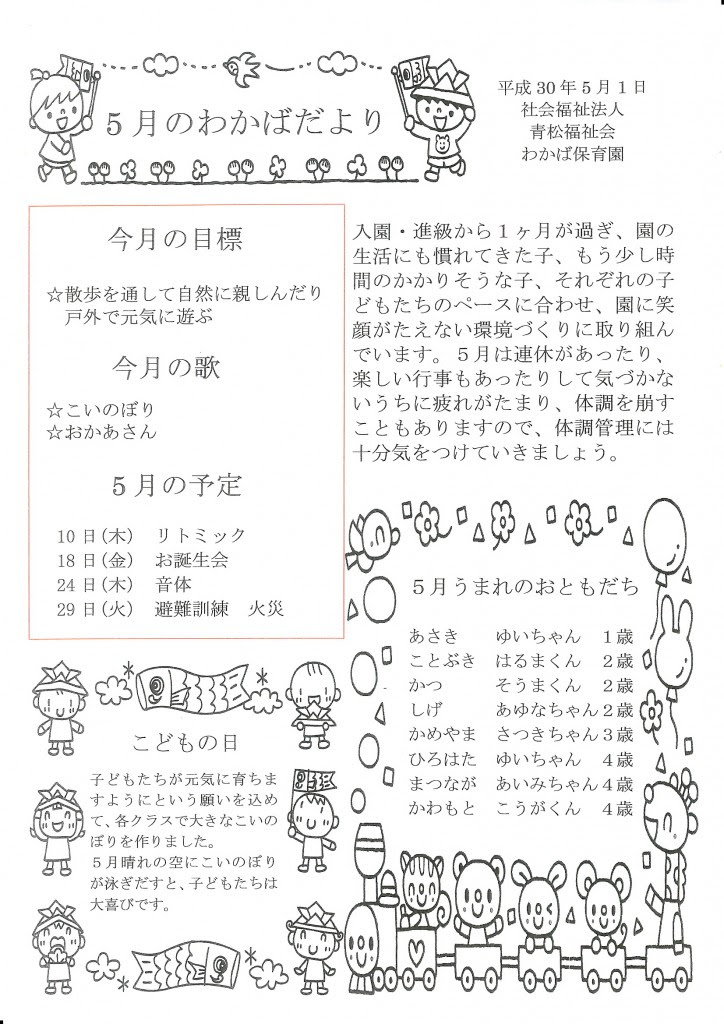 5月のわかばだより
平成30年5月1日
社会福祉法人
青松福祉会
わかば保育園
今月の目標
☆散歩を通して自然に親しんだり
戸外で元気に遊ぶ
今月の歌
☆こいのぼり
☆おかあさん
5月の予定
10日(木) リトミック
18日(金) お誕生会
24日(木) 音体
29日(火) 避難訓練 火災
入園・進級から1ヶ月が過ぎ、園の
生活にも慣れてきた子、もう少し時
間のかかりそうな子、それぞれの子
どもたちのペースに合わせ、園に笑
顔がたえない環境づくりに取り組ん
でいます。5月は連休があったり、
楽しい行事もあったりして気づかな
いうちに疲れがたまり、体調を崩す
こともありますので、体調管理には
十分気をつけていきましょう。
5月うまれのおともだち
あさき ゆいちゃん 1歳
ことぶき はるまくん 2歳
かつ そうまくん 2歳
しげ あゆなちゃん2歳
かめやま さつきちゃん3歳
ひろはた ゆいちゃん 4歳
まつなが あいみちゃん4歳
かわもと こうがくん 4歳
こどもの日
子どもたちが元気に育ちま
すようにという願いを込め
て、各クラスで大きなこいの
ぼりを作りました。
5月晴れの空にこいのぼり
が泳ぎだすと、子どもたちは
大喜びです。